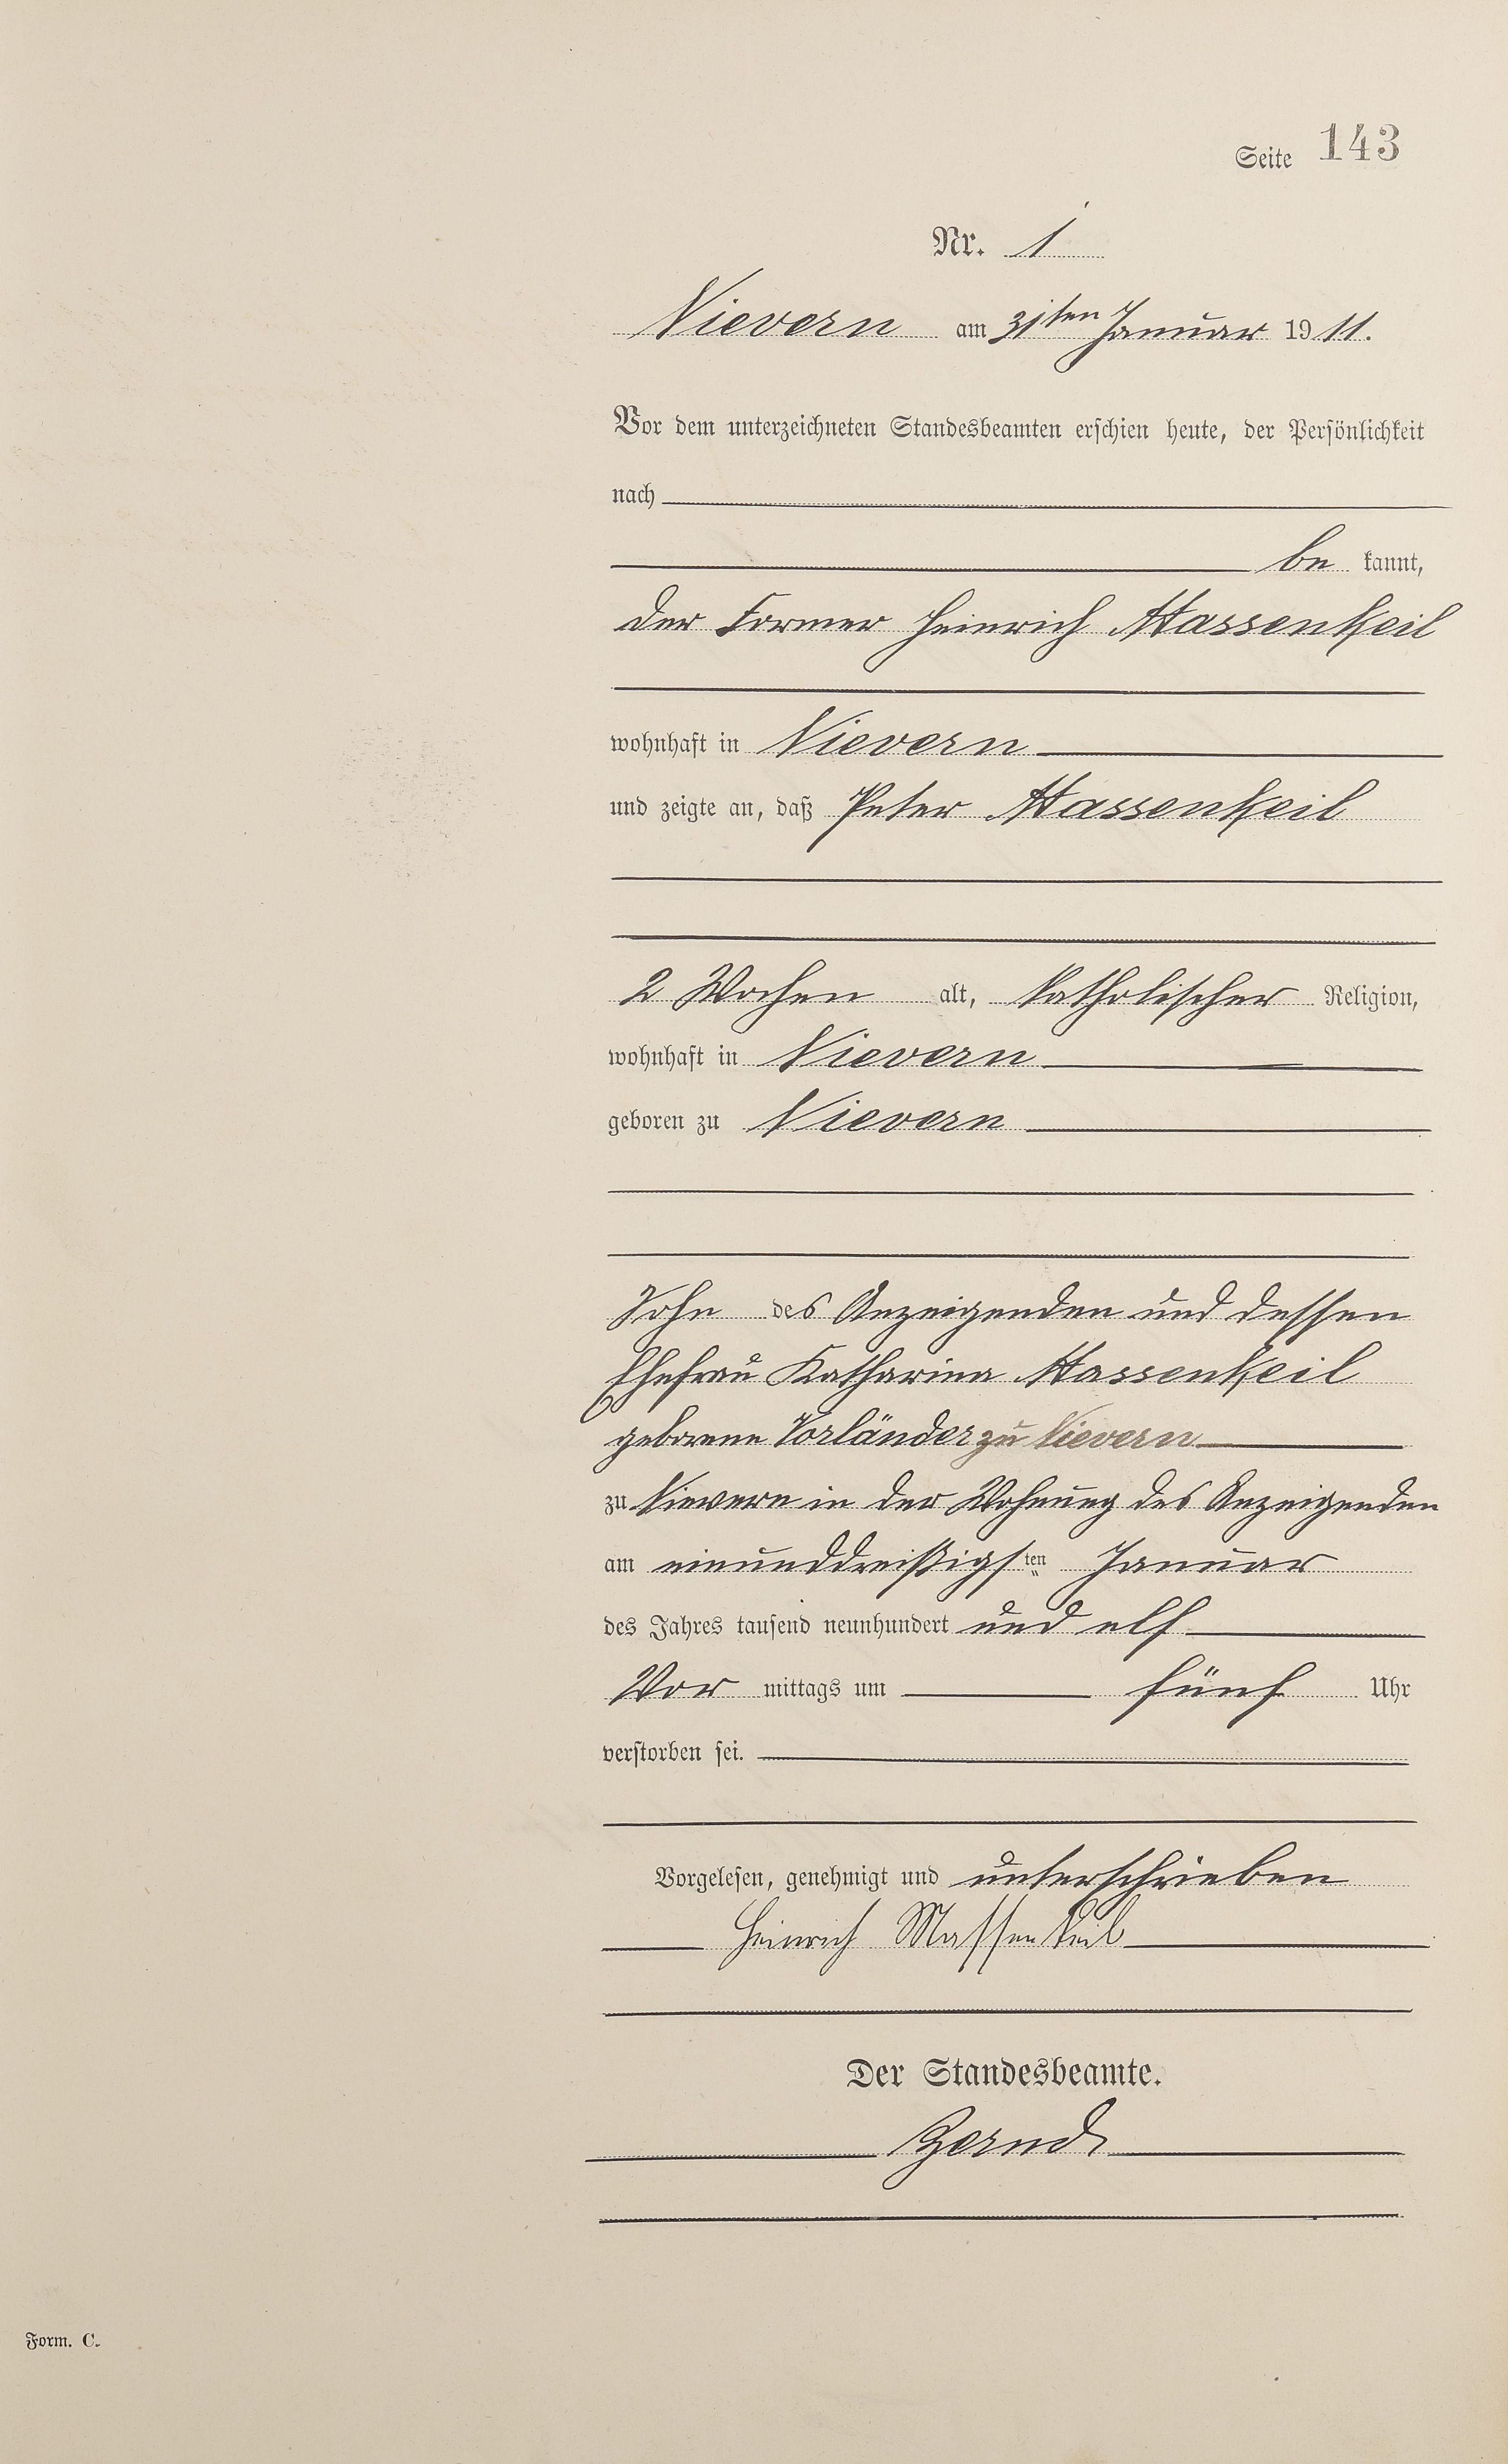 Seite 143
Nr. 1
Nievern am 31ten Januar 1911.
Vor dem unterzeichneten Standesbeamten erschien heute, der Persönlichkeit
nach
be kannt,
der Former Heinrich Massenkeil
wohnhaft in Nievern
und zeigte an, daß Peter Massenkeil
2 Wochen alt, katholischer Religion,
wohnhaft in Nievern
geboren zu Nievern
Sohn des Anzeigenden und dessen
Ehefrau Katharina Massenkeil
geborene Vorländer zu Nievern
zu Nievern in der Wohnung des Anzeigenden
am einunddreißigsten Januar
des Jahres tausend neunhundert und elf
Vor mittags um fünf Uhr
verstorben sei.
Vorgelesen, genehmigt und unterschrieben
Heinrich Massenkeil
Der Standesbeamte.
Form. C.